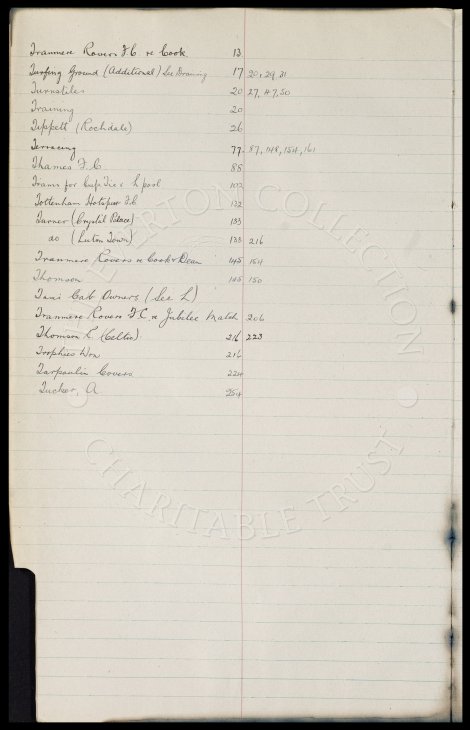 Tranmere Rovers F.C. re Cook. 13
Turfing Ground (Additional) See Draining 17 20, 29, 31
Turnstiles 20 27, 47, 50
Training 20
Tippett (Rochdale) 26
Terracing 77 87, 148, 154, 161
Thames F.C. 88
Trams for Cup Tie L'pool 102
Tottenham Hotspur F.C. 132
Turner (Crystal Palace) 133
do (Luton Town) 133 216
Tranmere Rovers re Cook & Dean 145 154
Thomson 145 150
Taxi Cab Owners (See L)
Tranmere Rovers F.C. re Jubilee Match 206
Thomson R. (Celtic) 216 223
Trophies Won 216
Tarpaulin Covers 224
Tucker, A 254
EVERTON COLLECTION
CHARITABLE TRUST